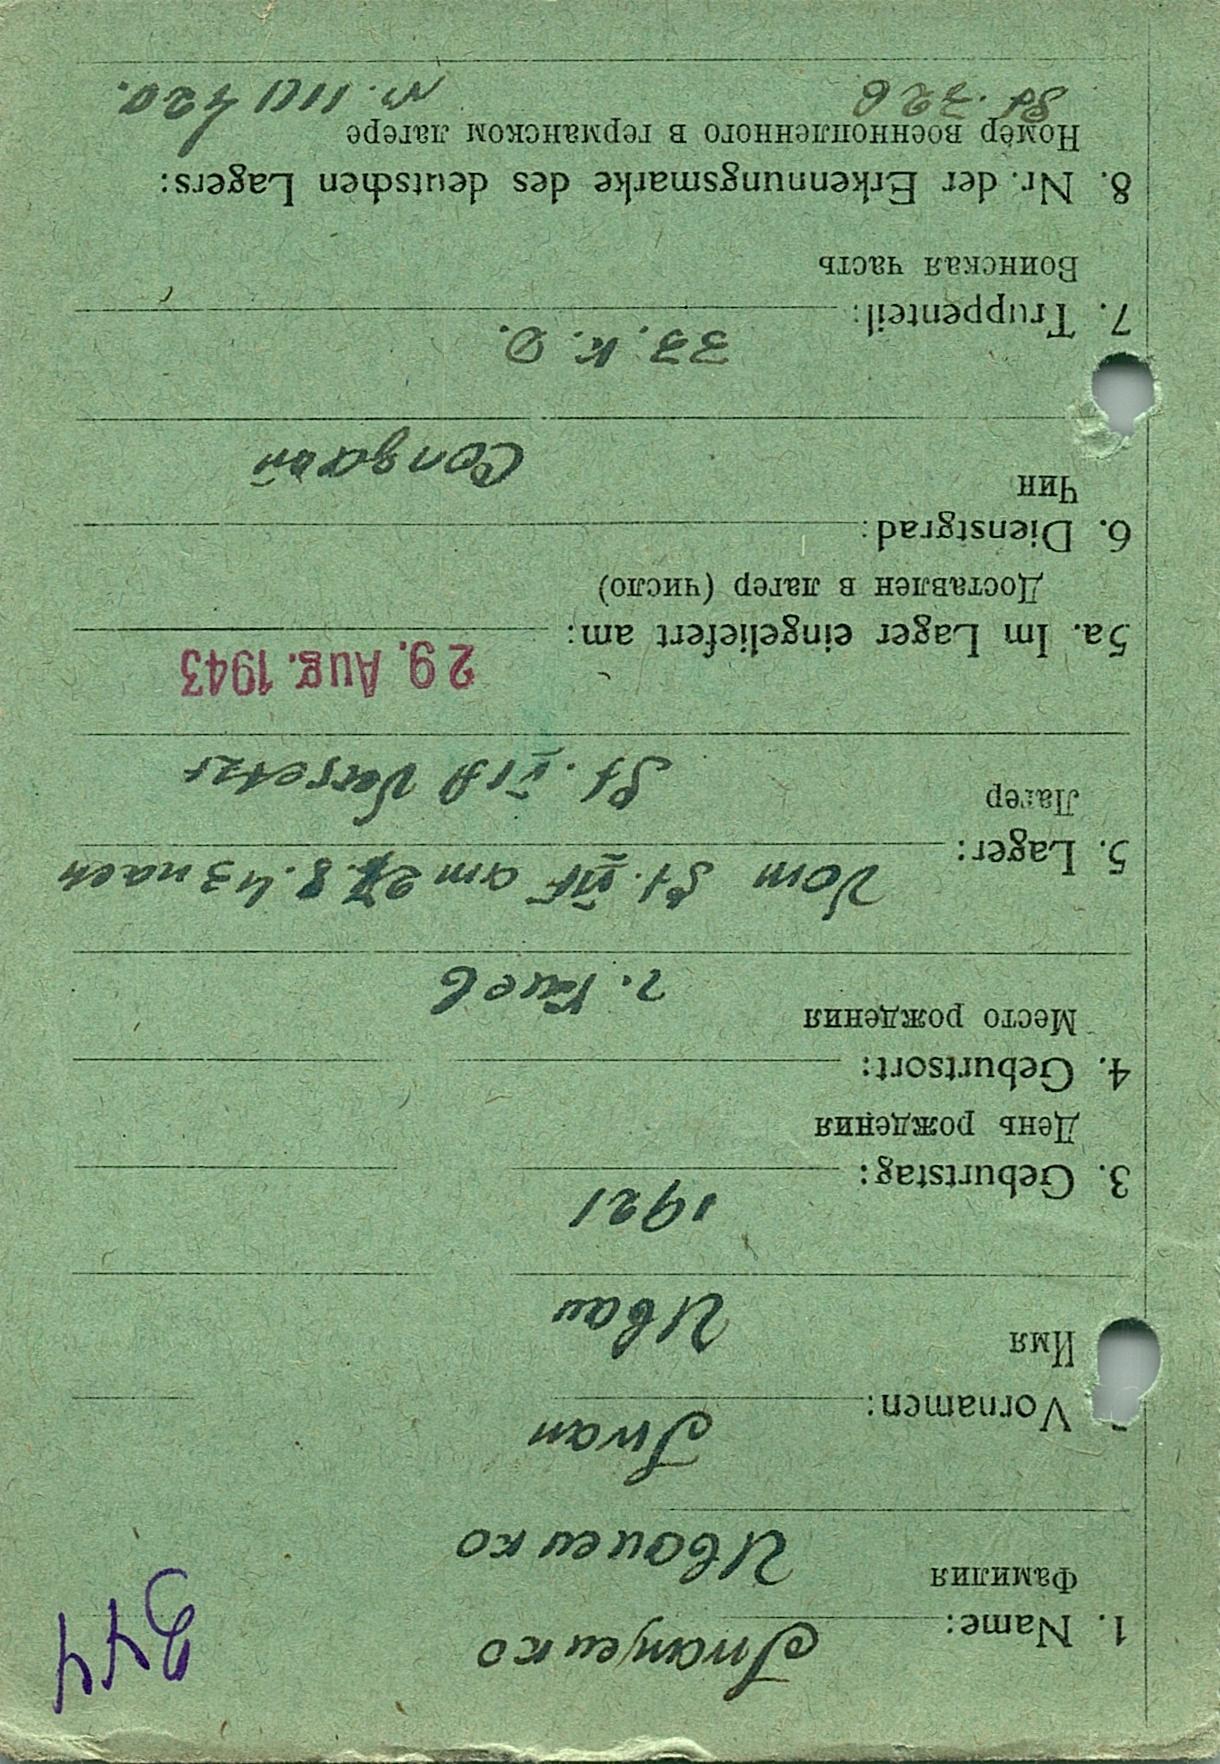 944
1. Name: Iwanenko
Фамилия Иваненко
Vornamen: Iwan
Имя Иван
3. Geburtstag: 1921
День рождения
4. Geburtsort:
Место рождения г. Киев
5. Lager: Vom St. VI F am 27.8.43 nach
Лагер St. VI A Versetzt
5a. Im Lager eingeliefert am: 29. Aug. 1943
Доставлен в лагер (число)
6. Dienstgrad:
Чин Солдат
7. Truppenteil: 33. К. D.
Воинская часть
8. Nr. der Erkennungsmarke des deutschen Lagers:
Номер военнопленного в германском лагере
St. 326